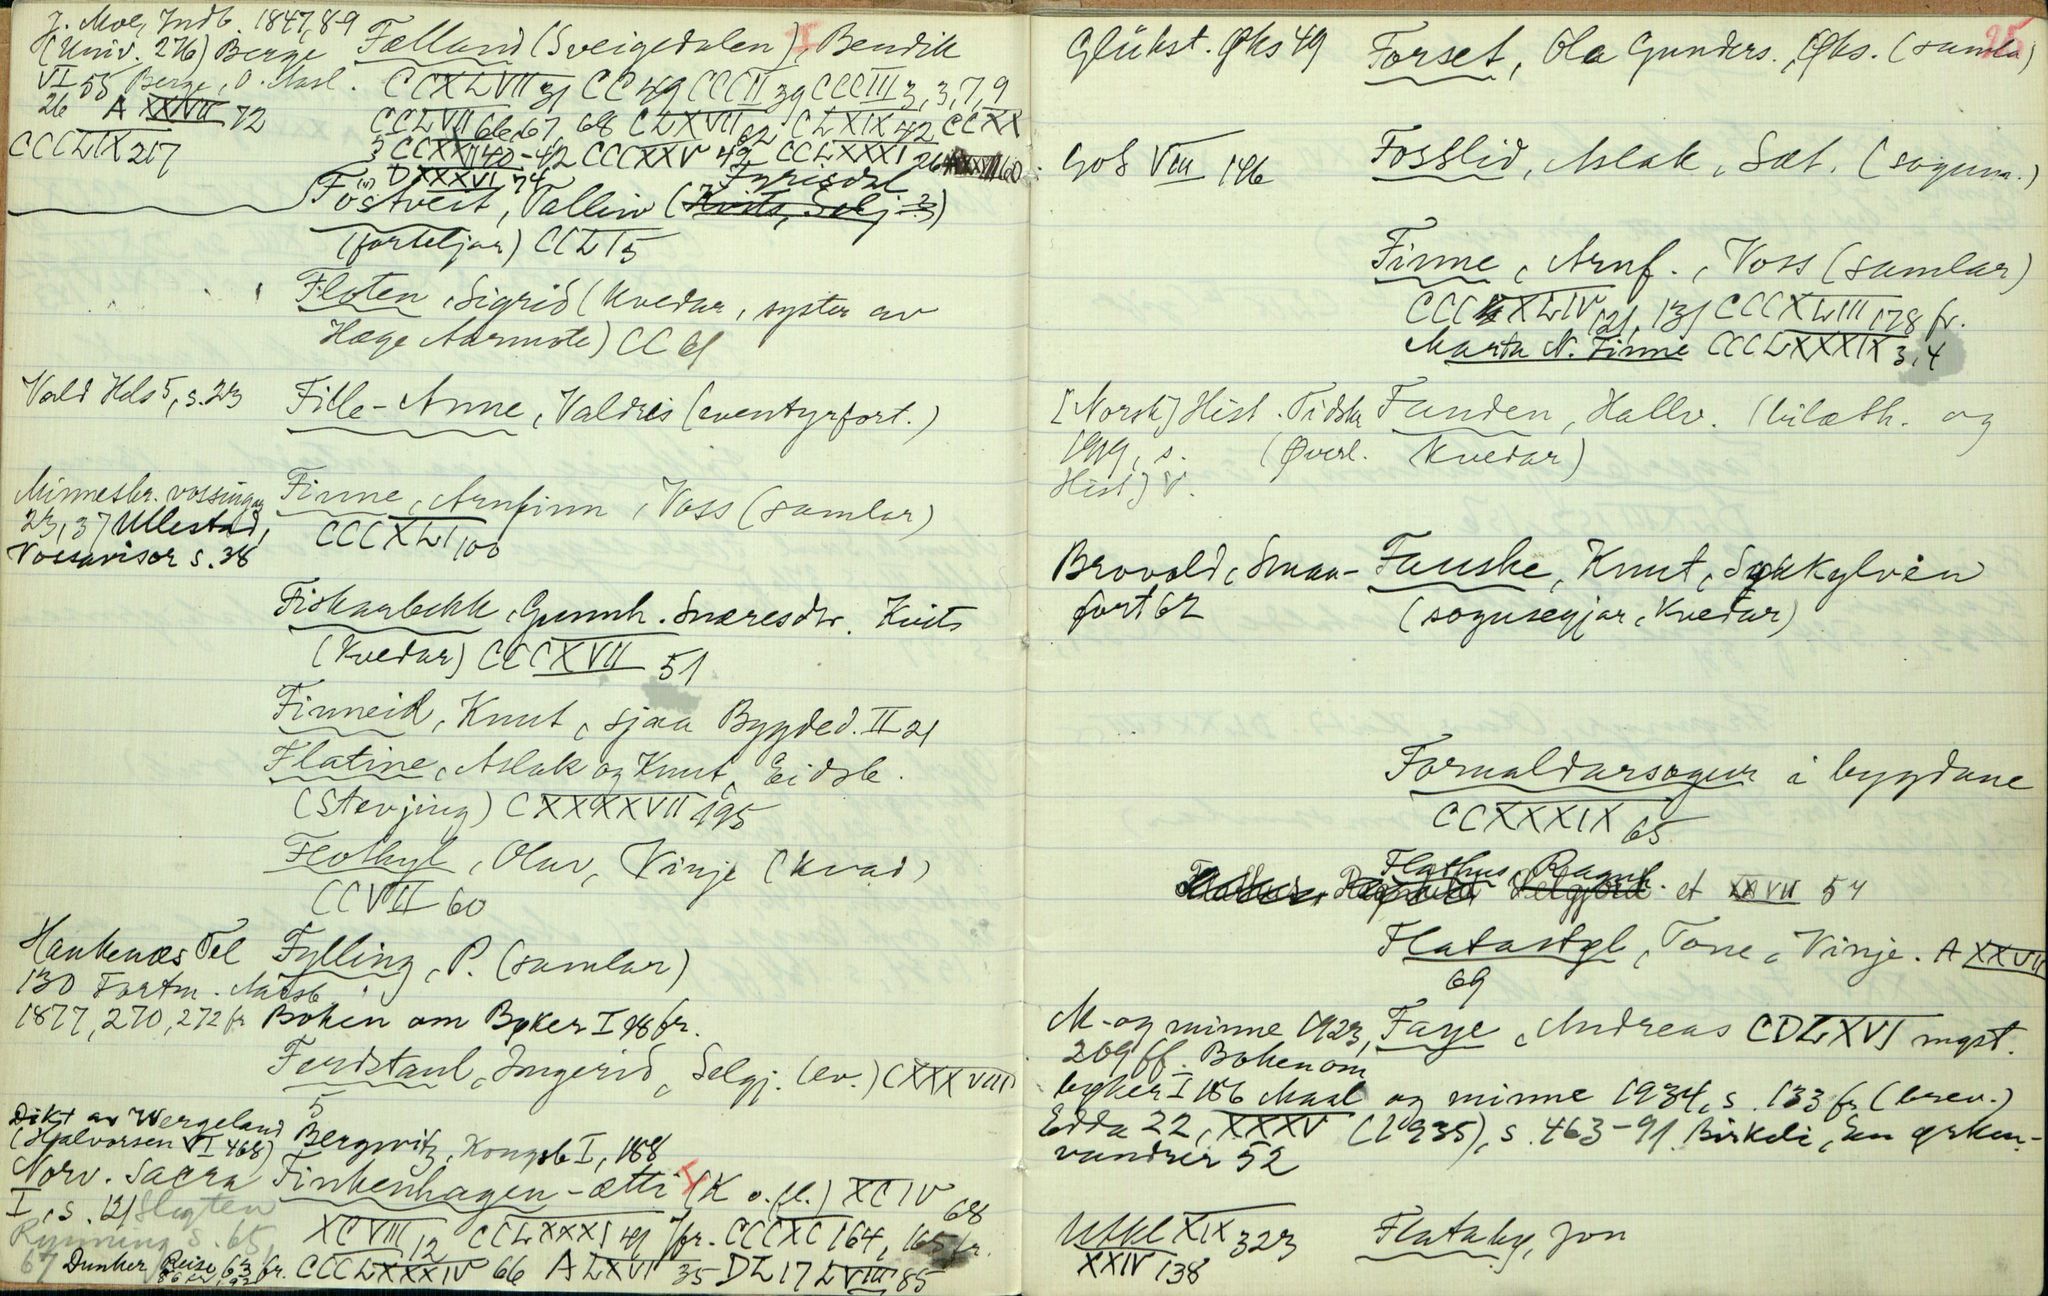 J. Moe, Indb. 1847, 89
(Univ. 276) Berge Fælland (Sveigedalen), Bendik
VI 55 Berge, O. Aasl. CCXLVII 31 CC 49 CCCII 39 CCCIII 3, 3, 7, 9
26 A XXVII 72 CCLVII 66, 67, 68 CLXVII 62 CLXIX 42 CCXX
CCCLIX 217 3 CCXXII 40-42 CCCXXV 42 CCLXXXI 26
DXXXVI 74 Fyresdal
Fostveit, Talliv
(forteljar) CCLI 5
Floten, Sigrid (kvedar, syster av
Hæge Aarmote) CC 61
Vald Hds 5, s. 23 Fille-Anne, Valdres (eventyrfort.)
Minneskr. vossingar Finne, Arnfinn, Voss (samlar)
23, 37 Ullestad, CCCXLI 100
Vossavisor s. 38
Fiskarbekk, Gunnh. Snæresdtr. Kvits
(kvedar) CCCXVII 51
Finneid, Knut, sjaa Bygded. II 21
Flatine, Aslak og Knut, Eidsb.
(Stevjing) CXXXXVII 195
Flothyl, Olav, Vinje (kvad)
CCVII 60
Hankenæs Tel Fylling, P. (samlar)
130 Fortn. Aarsb
1877, 270, 272 fr Boken om Bøker I 98 fr.
Ferdstaul, Ingerid, Selgj. (ev.) CXXXVIII
5
Dikt av Wergeland Bergwitz, Kongsb I, 188
(Halvorsen VI 468)
Norv. Sacra Finkenhagen-ætti (K o. fl.) XCIV 68
I, s. 121 Slegten XCVIII 12 CCLXXXI 41 fr. CCCXC 164, 165 fr.
Rynning S. 65,
67 Dunker Reise 63 fr. CCCLXXXIV 66 A LXVI 35 DL 17 LVIII 85
25
Glükst. Øks 49 Forset, Ola Gunders., Øks. (samla)
GoS VIII 126 Fosslid, Aslak, Sæt. (sogum.)
Finne, Arnf., Voss (samlar)
CCCXLIV 121, 131 CCCXLIII 178 fr.
Marta N. Finne CCCLXXXIX 3, 4
[Norsk] Hist. Tidskr Funden, Hallv. (bilæth. og
1919, s. (Øverl. kvedar)
Hist) V.
Brovold, Smaa- Fauske, Knut, Sykkylven
fort 62 (sogusegjar, kvedar)
Fornaldarsogur i bygdane
CCXXXIX 65
Flathus Ragnh.
et XXVII 54
Flatastyl, Tone, Vinje. A XXVII
69
M- og minne 1923, Faye, Andreas CDLXVI mgst.
209 ff. Boken om
bøker I 186 Maal og minne 1934, s. 133 fr (brev.)
Edda 22, XXXV (1935), s. 463-91 Birkeli, En ørken-
vandrer 52
Utkl XIX 323 Flataby, Jon
XXIV 138